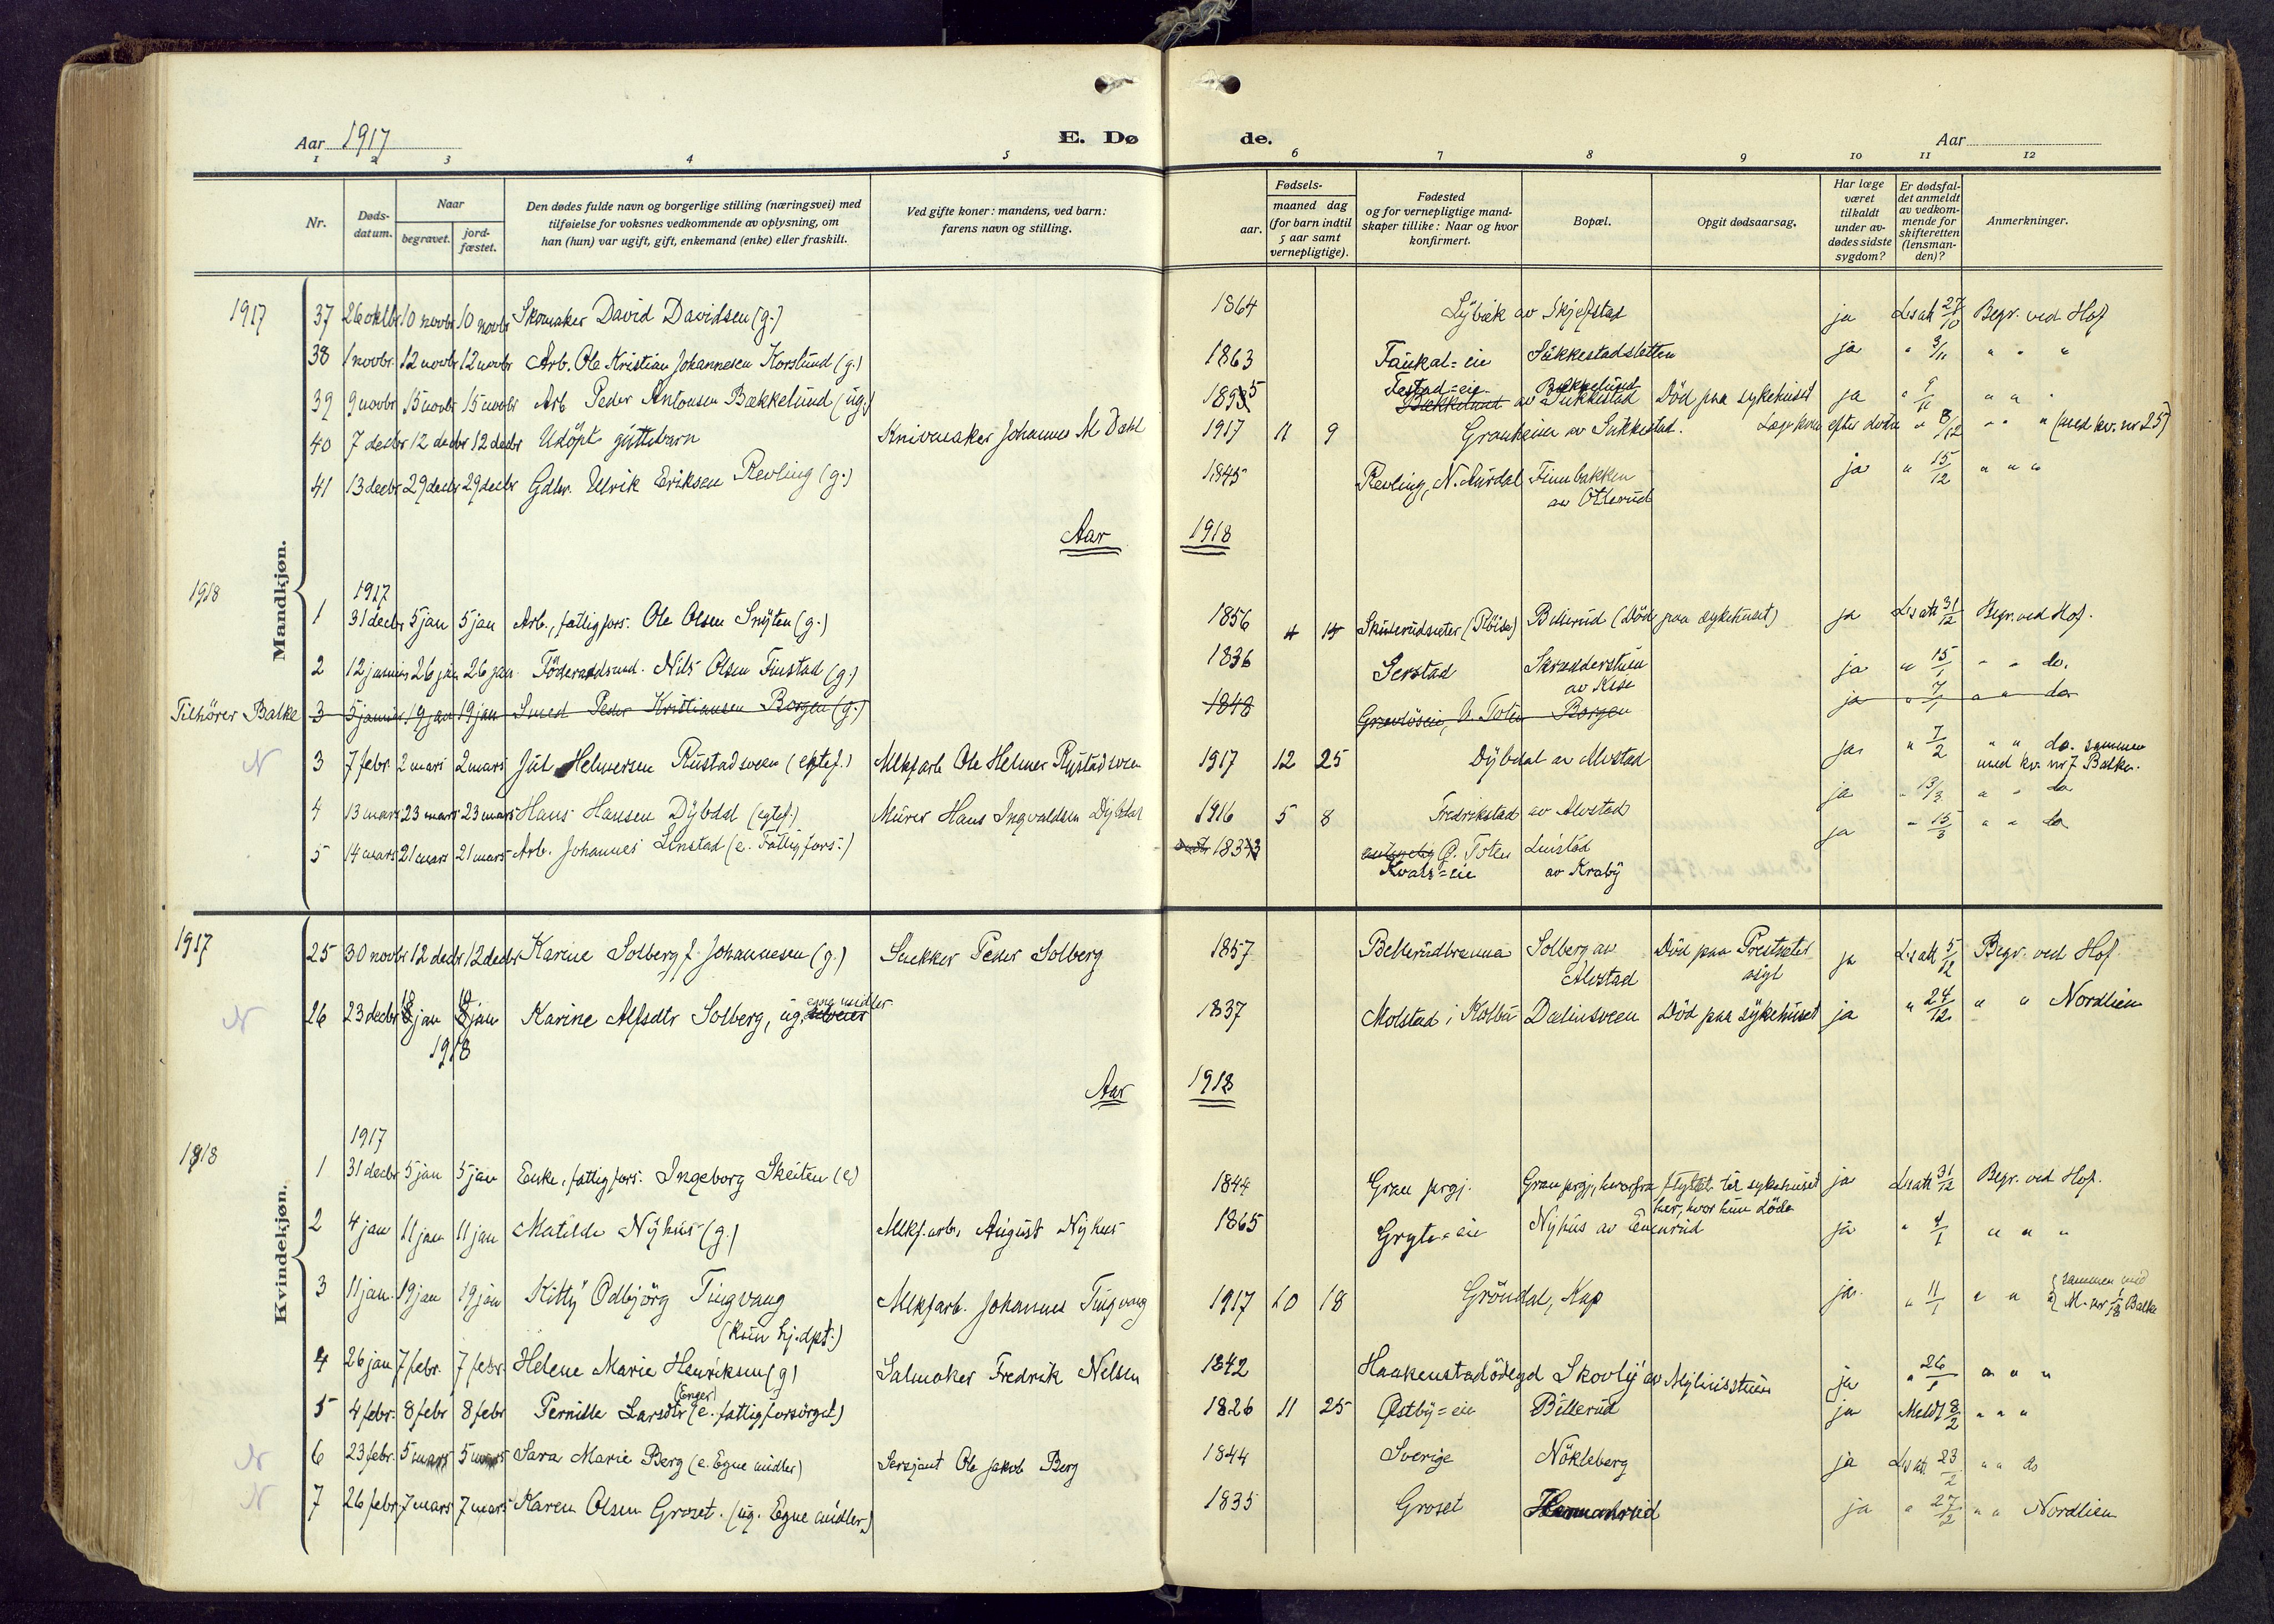 Aar 1917
E. Dø
de.
Aar
1 2 3 4 5 6 7 8 9 10 11 12
Nr.
Døds-
datum.
Naar
begravet.
jord-
fæstet.
Den dødes fulde navn og borgerlige stilling (næringsvei) med
tilføielse for voksnes vedkommende av oplysning, om
han (hun) var ugift, gift, enkemand (enke) eller fraskilt.
Ved gifte koner: mandens, ved barn:
farens navn og stilling.
Fødsels-
aar.
maaned dag
(for barn indtil
5 aar samt
vernepligtige).
Fødested
og for vernepligtige mand-
skaper tillike: Naar og hvor
konfirmert.
Bopæl.
Opgit dødsaarsag.
Har læge
været
tilkaldt
under av-
dødes sidste
sygdom?
Er dødsfal-
det anmeldt
av vedkom-
mende for
skifteretten
(lensman-
den)?
Anmerkninger.
Mandkjøn.
1917
37 26 oktbr 10 novbr 10 novbr Skomaker David Davidsen (g.) 1864 Lÿbæk av Skjefstad ja L.s att 27/10 Begr. ved Hof
38 1 novbr. 12 novbr 12 novbr Arb. Ole Kristian Johannesen Korslund (g.) 1863 Faukal=eie Sukkestadsletten ja " 3/11 " " "
39 9 novbr 15 novbr 15 novbr Arb Peder Antonsen Bækkelund (ug.) 1895 Festad=eie Bækkelund
Bækkelund av Sukkestad Död paa sykehuset ja " 9/11 " " "
40 7 decbr 12 decbr 12 decbr Udöpt guttebarn Knivmaker Johannes M Dahl 1917 11 9 Granheim av Sukkestad. Læge kom efter döden " 8/12 " " " (med kv. nr 25)
41 13 decbr 29 decbr 29 decbr Gdbr. Ulrik Eriksen Revling (g.) 1845 Revling, N. Aurdal Finnbakken
av Otterud ja " 15/12 " " "
Aar 1918
1918
1917
1 31 decbr 5 jan 5 jan Arb., fattigfors. Ole Olsen Snÿten (g.) 1856 4 15 Skuterudsæter (Flöisa) Billerud (Död paa sykehuset) ja L.s att 31/12 Begr. ved Hof.
2 12 januar 26 jan 26 jan. Föderaadsmd. Nils Olsen Finstad (g.) 1836 Serstad Skrædderstuen
av Kise ja " 15/1 " " do.
Tilhörer Balke 3 5 januar 19 jan 19 jan Smed Peder Kristiansen Borgen (g.) 1848 Ö. Toten Borgen ja " 7/1 " " do
N 3 7 febr. 2 mars 2 mars Jul Helmersen Rustadsveen (egtef.) Mlkfarb Ole Helmer Rustadsveen 1917 12 25 Dÿbdal av Alvstad ja. " 7/2 " " do. sammen
med kv. nr 7 Balke.
4 13 mars 23 mars 23 mars Hans Hansen Dÿbdal (egtef.) Murer Hans Ingvaldsen Dÿbdal 1916 5 8 Fredrikstad av Alvstad ja " 13/3 " " do
5 14 mars 21 mars 21 mars Arb. Johannes Linstad (e. Fattigfors.) 1833 Ö. Toten Linstad
Kvals=eie av Kraby ja " 15/3 " " do
Kvindekjøn.
1917
25 30 novbr 12 decbr 12 decbr Karine Solberg f. Johannesen (g.) Snekker Peder Solberg 1857 Billerudbrenna Solberg av
Alvstad Död paa Prestsæter
asyl ja L.s att 5/12 Begr. ved Hof
N 26 23 decbr 18 jan 18 jan Karine Alfsdtr Solberg, ug. egne midler 1837 Molstad i Kolbu Dælinsveen Död paa sykehuset ja " 24/12 " " Nordlien
1918
Aar 1918
1918
1917
1 31 decbr 5 jan 5 jan Enke, fattigfors. Ingeborg Skeiten (e) 1844 Gran prgj. Gran prgj., hvorfra flyttet til sykehuset
her, hvor hun döde ja L.s att 31/12 Begr. ved Hof.
2 4 jan 11 jan 11 jan Matilde Nÿhus (g.) Mlkf.arb. August Nyhus 1865 Gryte=eie Nÿhus av Eunerud ja " 4/1 " " "
3 11 jan. 19 jan 19 jan Kitty Odbjörg Tingvang
(kun hj.dpt.) Mlkfarb. Johannes Tingvang 1917 10 18 Gröndal, Kap ja. " 11/1 " " " sammen med
M. nr 1/18 Balke
4 26 jan 7 febr. 7 febr. Helene Marie Henriksen (g) Salmaker Fredrik Nelsen 1842 Haakenstadödegd Skovly av Mÿliusstuen ja " 26/1 " " "
5 4 febr. 8 febr 8 febr Pernille Larsdtr (Enger) (e. fattigforsörget) 1826 11 25 Østby=eie Billerud ja Meldt 8/2 " " "
N 6 23 febr. 5 mars 5 mars Sara Marie Berg (e. Egne midler) Sersjant Ole Jakob Berg 1844 Sverige Nökleberg ja L.s att. 23/2 " " do
N 7 26 febr. 7 mars 7 mars Karen Olsen Groset. (ug. Egne midler) 1835 Groset Hermanrud ja " 27/2 " " Nordlien